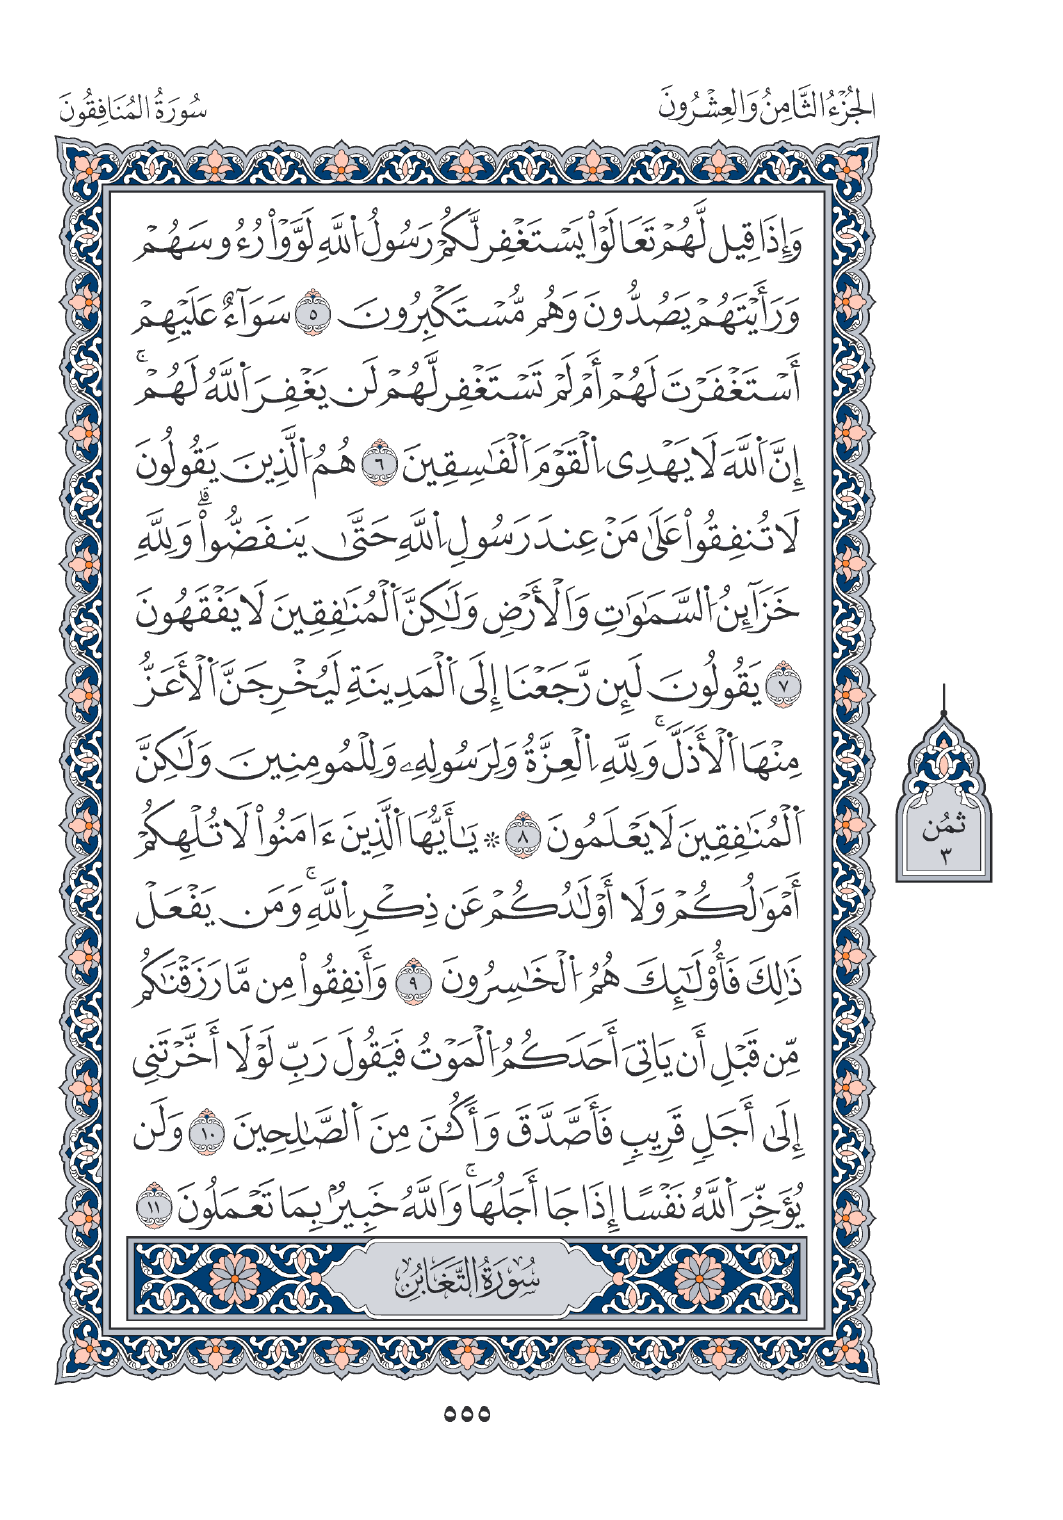 الجُزْءُ الثَّامِنُ وَالعِشْرُونَ
سُورَةُ المُنَافِقُونَ
وَإِذَا قِيل لَّهُمْ تَعَالَوْاْ يَسْتَغْفِر لَّكُمْ رَسُولُ اُ۬للَّهِ لَوَّوْاْ رُءُوسَهُمْ
وَرَأَيْتَهُمْ يَصُدُّونَ وَهُم مُّسْتَكْبِرُونَ ٥ سَوَآءٌ عَلَيْهِمْ
أَسْتَغْفَرْتَ لَهُمْ أَمْ لَمْ تَسْتَغْفِر لَّهُمْ لَن يَغْفِرَ اَ۬للَّهُ لَهُمْۚ
إِنَّ اَ۬للَّهَ لَا يَهْدِى اِ۬لْقَوْمَ اَ۬لْفَٰسِقِينَ ٦ هُمُ اُ۬لَّذِينَ يَقُولُونَ
لَا تُنفِقُواْ عَلَىٰ مَنْ عِندَ رَسُولِ اِ۬للَّهِ حَتَّىٰ يَنفَضُّواْۗ وَلِلَّهِ
خَزَآئِنُ اُ۬لسَّمَٰوَٰتِ وَالْأَرْضِ وَلَٰكِنَّ اَ۬لْمُنَٰفِقِينَ لَا يَفْقَهُونَ
٧ يَقُولُونَ لَئِن رَّجَعْنَا إِلَى اَ۬لْمَدِينَةِ لَيُخْرِجَنَّ اَ۬لْأَعَزُّ
مِنْهَا اَ۬لْأَذَلَّۚ وَلِلَّهِ اِ۬لْعِزَّةُ وَلِرَسُولِهِۦ وَلِلْمُومِنِينَ وَلَٰكِنَّ
اَ۬لْمُنَٰفِقِينَ لَا يَعْلَمُونَ ٨ ۞ يَٰأَيُّهَا اَ۬لَّذِينَ ءَامَنُواْ لَا تُلْهِكُمْ
أَمْوَٰلُكُمْ وَلَا أَوْلَٰدُكُمْ عَن ذِكْرِ اِ۬للَّهِۚ وَمَن يَفْعَلْ
ذَٰلِكَ فَأُوْلَٰٓئِكَ هُمُ اُ۬لْخَٰسِرُونَ ٩ وَأَنفِقُواْ مِن مَّا رَزَقْنَٰكُم
مِّن قَبْلِ أَن يَاتِىَ أَحَدَكُمُ اُ۬لْمَوْتُ فَيَقُولَ رَبِّ لَوْلَا أَخَّرْتَنِى
إِلَىٰ أَجَلٍ قَرِيبٍ فَأَصَّدَّقَ وَأَكُونَ مِنَ اَ۬لصَّٰلِحِينَ ١٠ وَلَن
يُؤَخِّرَ اَ۬للَّهُ نَفْسًا إِذَا جَا أَجَلُهَاۚ وَاللَّهُ خَبِيرٌۢ بِمَا تَعْمَلُونَ ١١
سُورَةُ التَّغَابُنِ
ثمُن
٣
٥٥٥